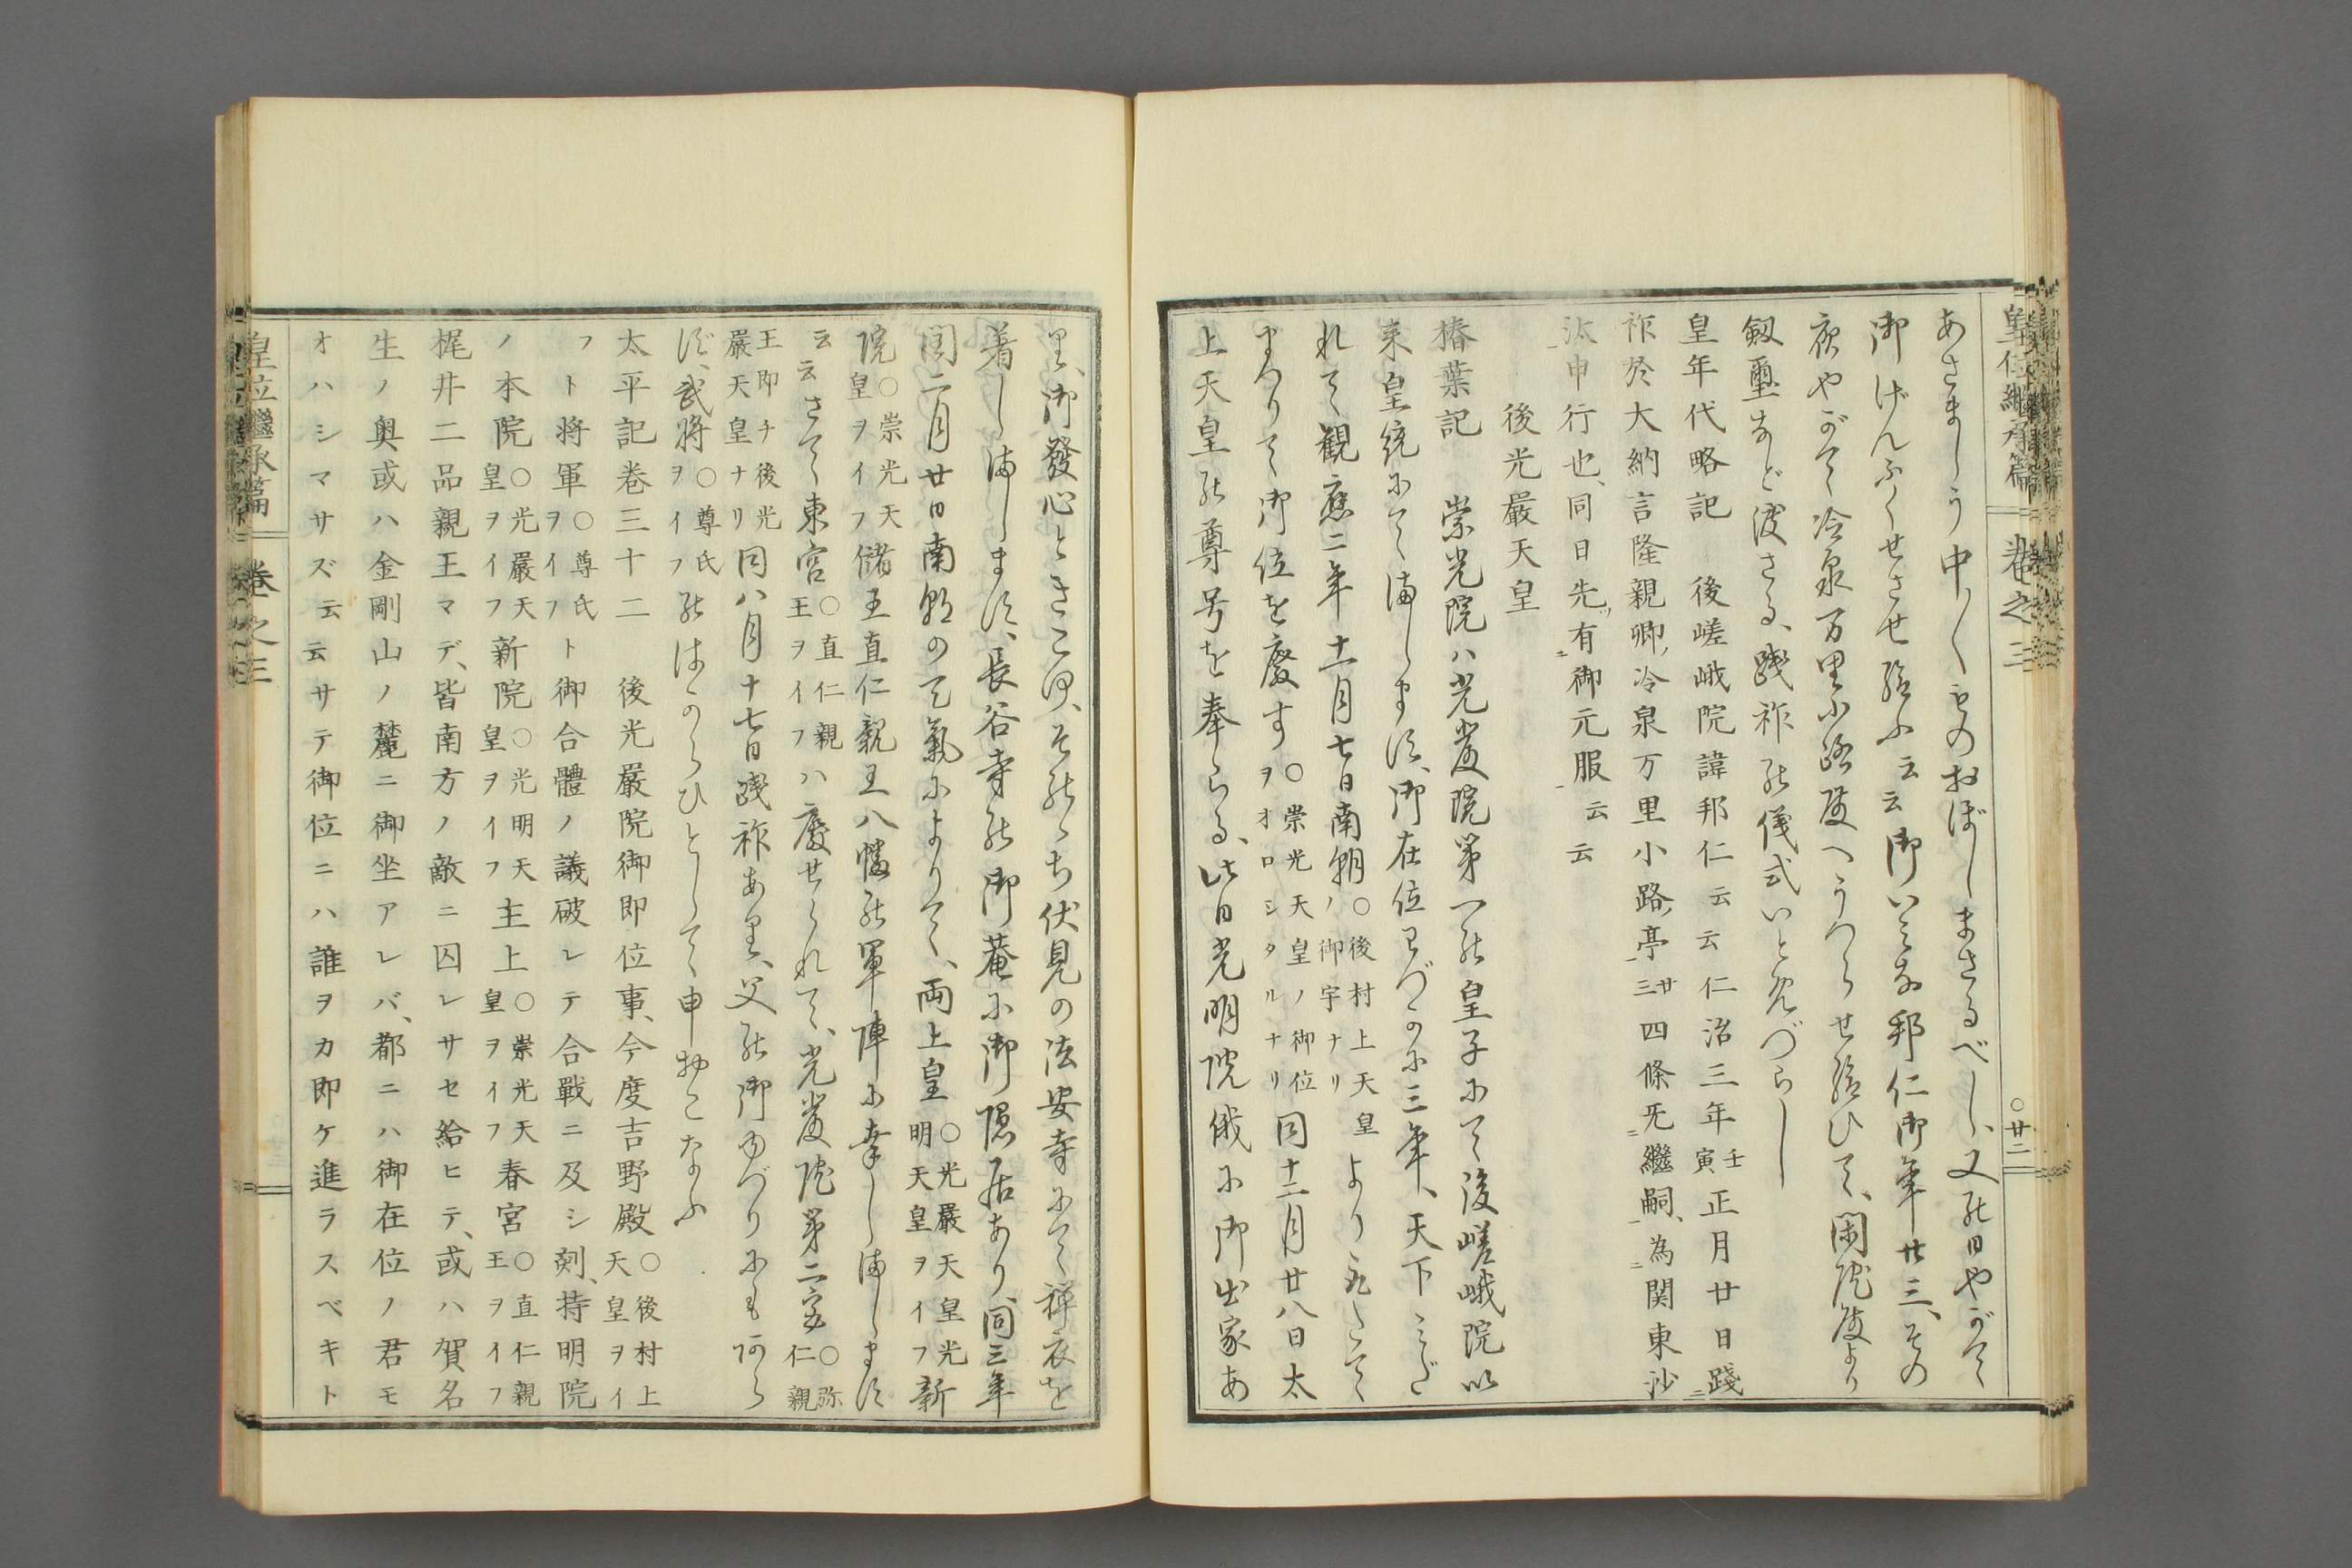 皇位継承篇 巻之三 ○廿二
あさましう中〳〵ものおぼしまさるべし、又の日やがて
御げんぷくせさせ給ふ云云御いみな邦仁御年廿三、その
夜やがて冷泉万里小路殿へうつらせ給ひて、閑院殿より
剱璽など渡さる、踐祚の儀式いとめづらし
皇年代略記 後嵯峨院諱邦仁云云仁治三年壬寅正月廿日踐
祚於大納言隆親卿冷泉万里小路亭廿三四條旡繼嗣、為関東沙
汰申行也、同日先有御元服云云
後光嚴天皇
椿葉記 崇光院ハ光嚴院第一の皇子にて後嵯峨院以
来皇統にてまします、御在位わづかに三年、天下みだ
れて観應二年十一月七日南朝○後村上天皇ノ御宇ナリより
まゐりて御位を廢す○崇光天皇ノ御位ヲオロシタルナリ同十二月廿八日太
上天皇の尊号を奉らる、此日光明院俄に御出家あ
り、御發心ときこゆ、そのゝち伏見の法安寺にて禅衣を
着しまします、長谷寺の御菴に御隠居あり、同三年
閏二月廿日南朝の天氣によりて、両上皇○光嚴天皇光明天皇ヲイフ新
院○崇光天皇ヲイフ儲王直仁親王八幡の軍陣に幸しまします
云云さて東宮○直仁親王ヲイフハ廢せられて、光嚴院第二宮○弥仁親
王即チ後光嚴天皇ナリ同八月十七日踐祚あり、父の御ゆづりにもあら
ず、武将○尊氏ヲイフのはからひとして申おこなふ
太平記巻三十二 後光嚴院御即位事、今度吉野殿○後村上天皇ヲイ
フト将軍○尊氏ヲイフト御合體ノ議破レテ合戰ニ及シ刻、持明院
ノ本院○光嚴天皇ヲイフ新院○光明天皇ヲイフ主上○崇光天皇ヲイフ春宮○直仁親王ヲイフ
梶井二品親王マデ、皆南方ノ敵ニ囚レサセ給ヒテ、或ハ賀名
生ノ奥或ハ金剛山ノ麓ニ御坐アレバ、都ニハ御在位ノ君モ
オハシマサズ云云サテ御位ニハ誰ヲカ即ケ進ラスベキト
皇位繼承篇 巻之三